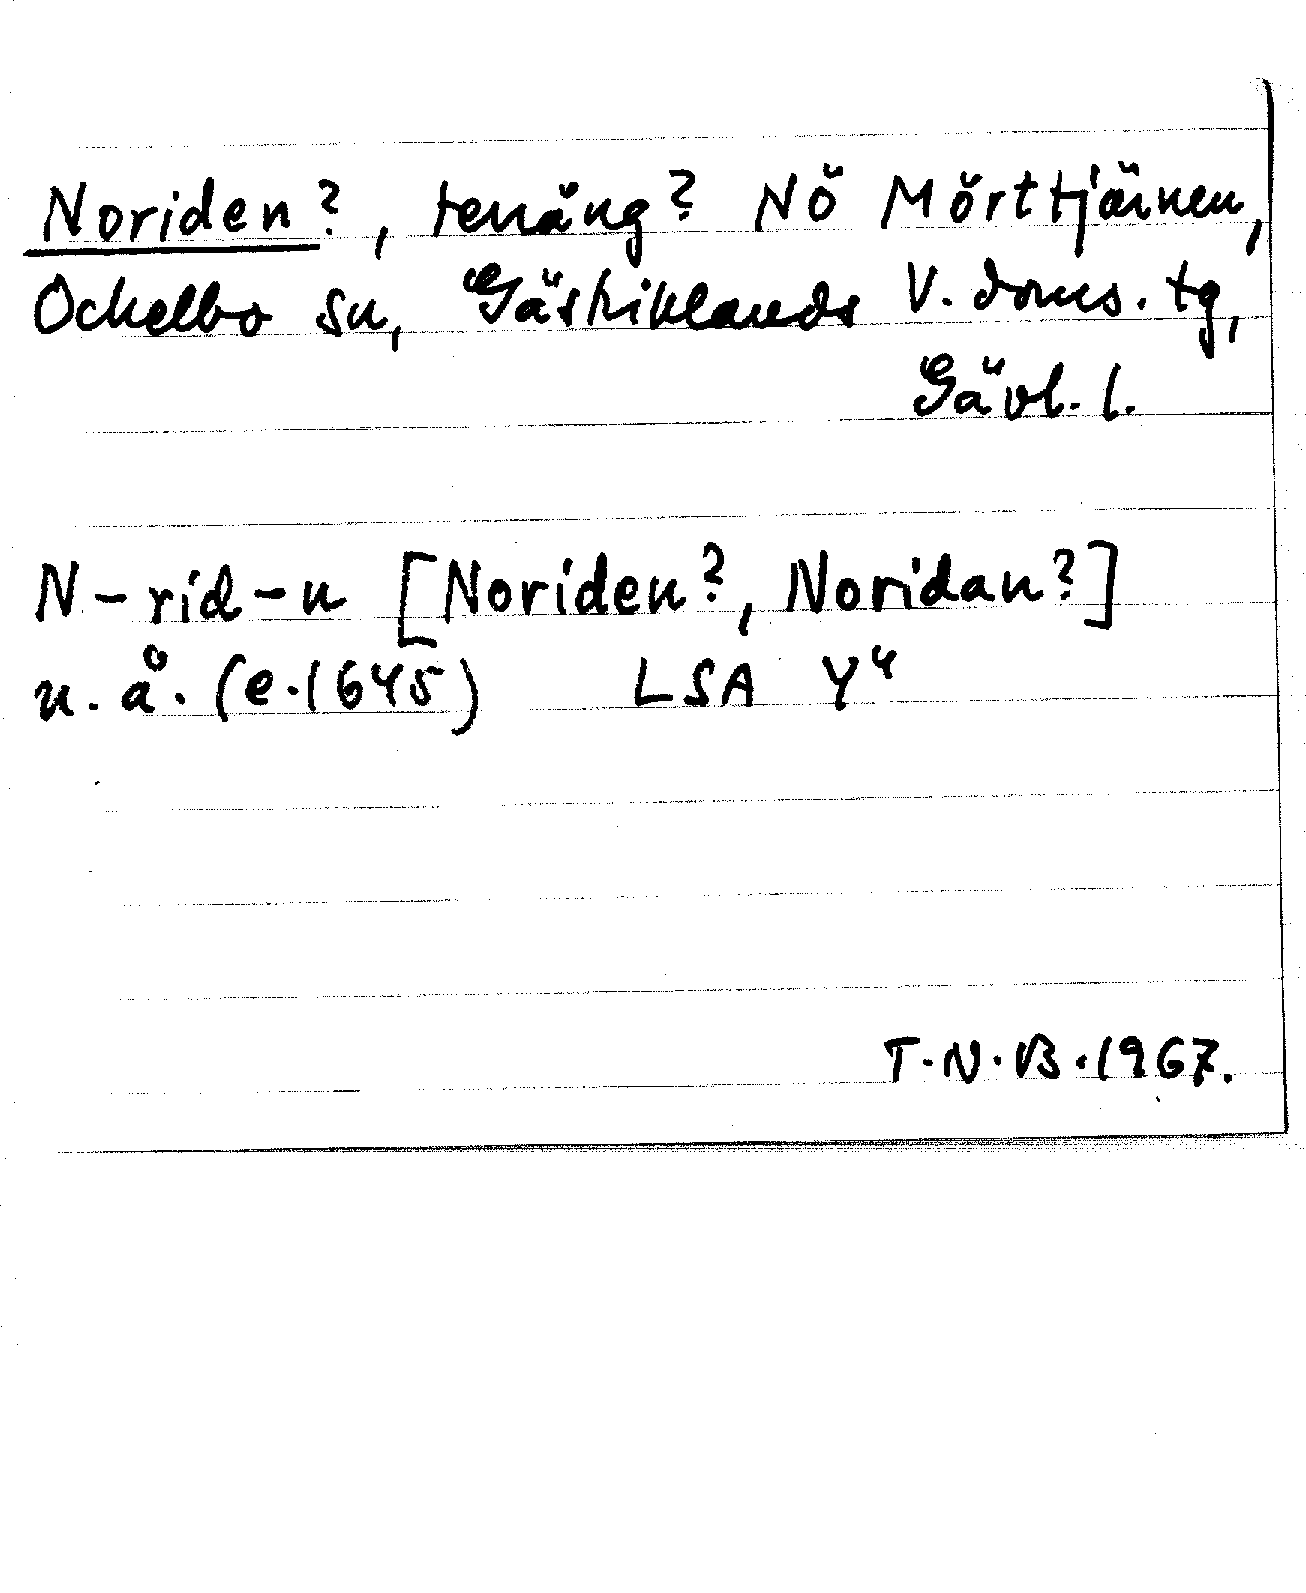 Noriden?, terräng? NÖ Mörttjärnen,
Ockelbo sn, Gästriklands V. doms. tg,
Gävl. l.
N-rid-n [Noriden?, Noridan?]
u. å. (e. 1645) LSA Y4
T.N.B. 1967.